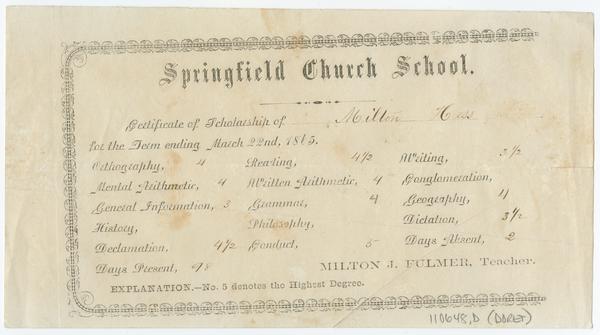 Springfield Church School.
Certificate of Scholarship of Milton Hess
for the Term ending March 22nd, 1865.
Orthography, 4 Reading, 4½ Writing, 3½
Mental Arithmetic, 4 Written Arithmetic, 4 Conglomeration,
General Information, 3 Grammar, 4 Geography, 4
History, Philosophy, Dictation, 3½
Declamation, 4½ Conduct, 5 Days Absent, 2
Days Present, 98 MILTON J. FULMER, Teacher.
EXPLANATION.—No. 5 denotes the Highest Degree.
110648,D (DDRLF)